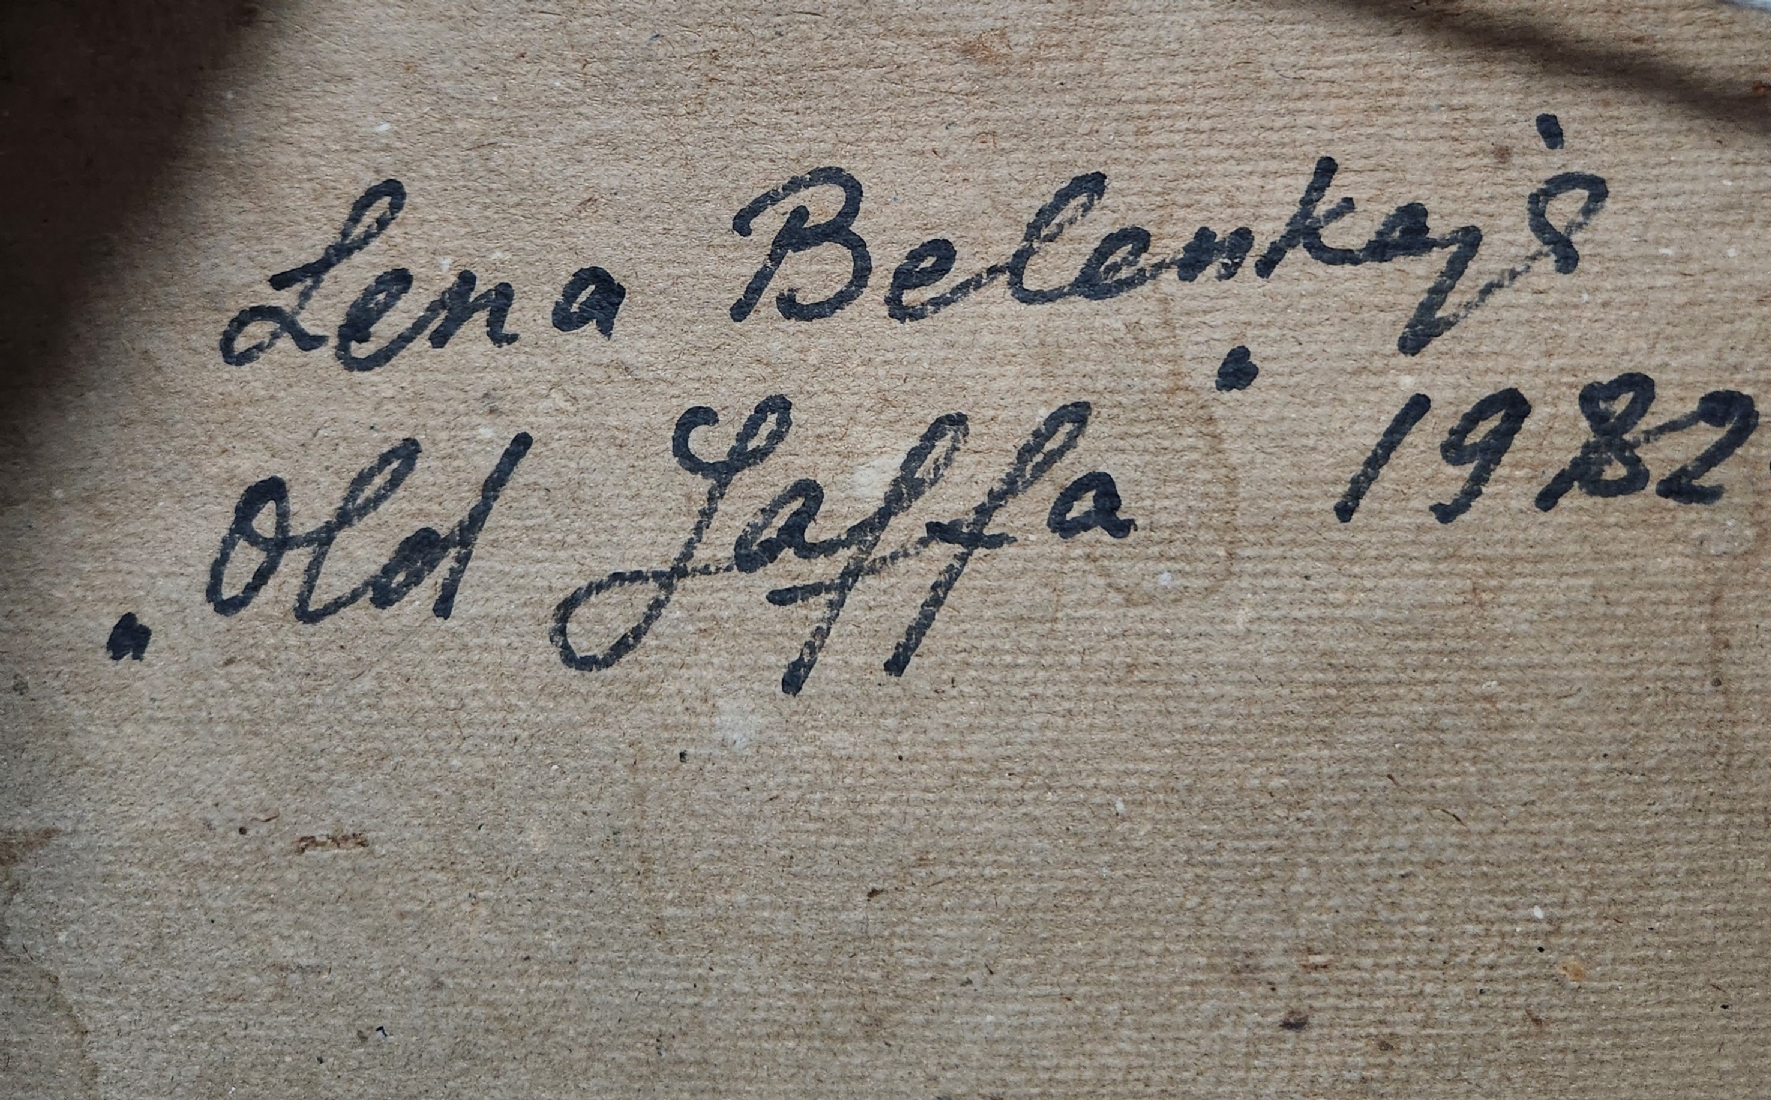 Lena Belenkaj's
"Old Jaffa" 1982